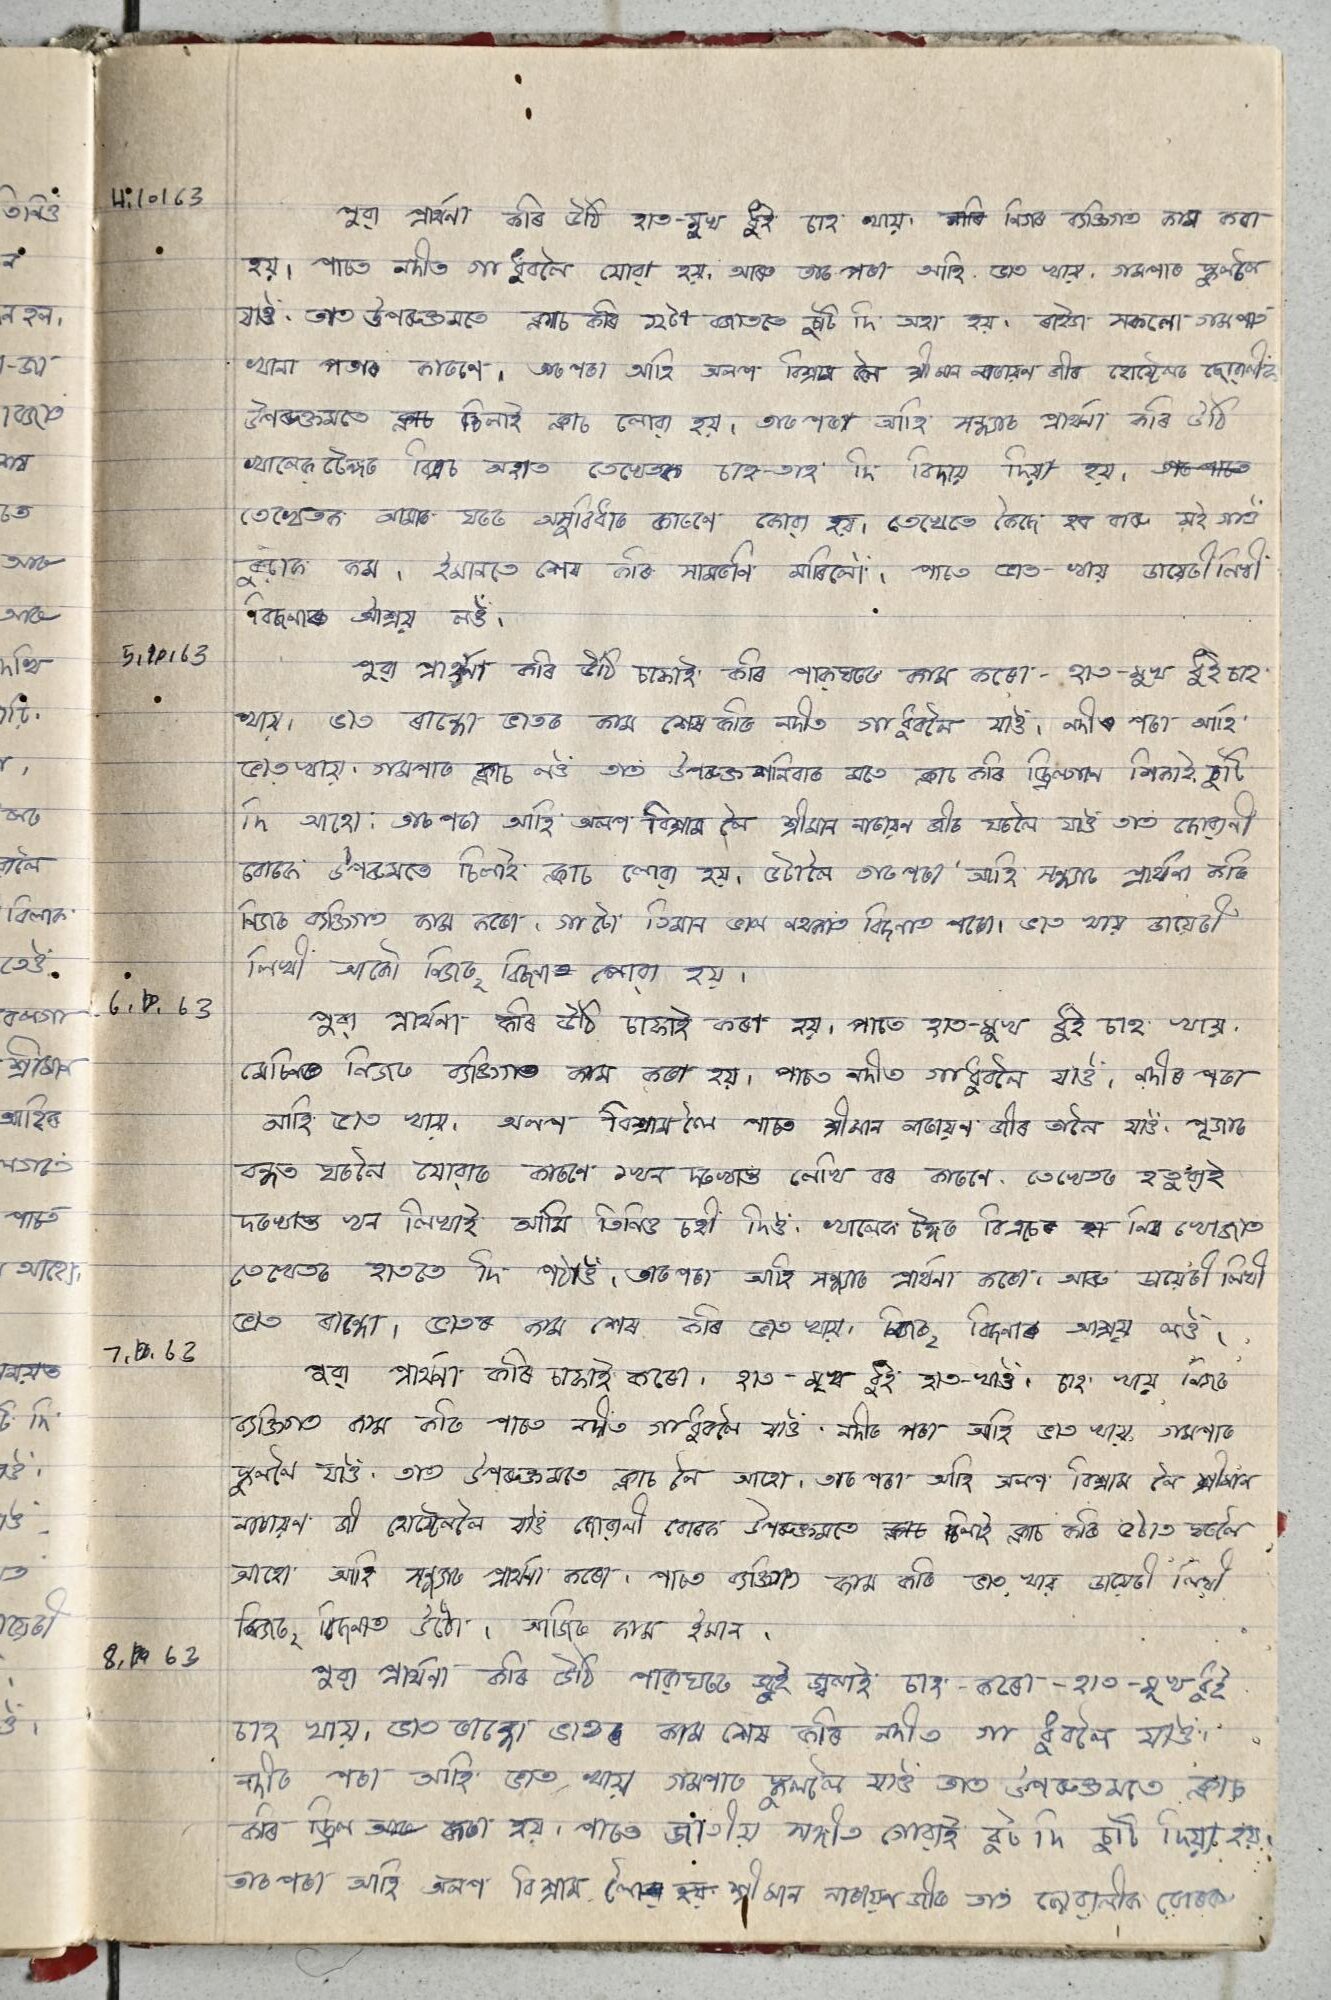 4.10.63
পুৱা প্ৰাৰ্থনা কৰি উঠি হাত-মুখ ধুই চাহ খায়। নিজৰ ব্যক্তিগত কাম কৰা
হয়। পাচত নদীত গা ধুবলৈ যোৱা হয়। আৰু তাৰ পৰা আহি ভাত খায়। গমপাত স্কুললৈ
যাওঁ। তাত উপৰুক্তমতে ক্লাচ কৰি ১২টা বজাতে ছুটি দি অহা হয়।
তাৰ পৰা আহি অলপ বিশ্ৰাম লৈ শ্ৰীমান নাৰায়ণ জীৰ হোষ্টেলত ছোৱালীক
উপৰুক্তমতে চিলাই ক্লাচ লোৱা হয়। তাৰ পৰা আহি সন্ধ্যাত প্ৰাৰ্থনা কৰি উঠি
তেখেতক চাহ-তাহ দি বিদায় দিয়া হয়।
তেখেতক আমাৰ ঘৰত অসুবিধাৰ কাৰণে কোৱা হয়। তেখেতে
কম। ইমানতে শেষ কৰি সামৰণি মাৰিলোঁ। পাচে ভাত খায় ডায়েৰী লিখী
বিচনাৰ আশ্ৰয় লওঁ।
5.10.63
পুৱা প্ৰাৰ্থনা কৰি উঠি চাফাই কৰি পাকঘৰত কাম কৰো - হাত-মুখ ধুই চাহ
খায়। ভাত ৰান্ধো ভাতৰ কাম শেষ কৰি নদীত গা ধুবলৈ যাওঁ। নদীৰ পৰা আহি
ভাত খায়। গমপাত ক্লাচ লওঁ তাত উপৰুক্ত শনিবাৰ মতে ক্লাচ কৰি শিকাই ছুটি
দি আহো। তাৰ পৰা আহি অলপ বিশ্ৰাম লৈ শ্ৰীমান নাৰায়ণ জীৰ ঘৰলৈ যাওঁ তাত ছোৱালী
বোৰক উপৰুক্তমতে চিলাই ক্লাচ লোৱা হয়। ৫টালৈ তাৰ পৰা আহি সন্ধ্যাত প্ৰাৰ্থনা কৰি
নিজৰ ব্যক্তিগত কাম কৰো। গা টো তিমান ভাল নথকাত বিচনাত পৰো। ভাত খায় ডায়েৰী
লিখী আকৌ নিজৰ বিচনাত শোৱা হয়।
6.10.63
পুৱা প্ৰাৰ্থনা কৰি উঠি চাফাই কৰা হয়। পাচে হাত-মুখ ধুই চাহ খায়।
মেচিনত নিজৰ ব্যক্তিগত কাম কৰা হয়। পাচত নদীত গা ধুবলৈ যাওঁ। নদীৰ পৰা
আহি ভাত খায়। অলপ বিশ্ৰাম লৈ পাচত শ্ৰীমান নাৰায়ণ জীৰ তালৈ যাওঁ। পূজাৰ
বন্ধত ঘৰলৈ যোৱাৰ কাৰণে ১খন দৰখাস্ত লেখি বৰ কাৰণে। তেখেতৰ হতুৱাই
দৰখাস্ত খন লিখাই আমি তিনিও চহী দিওঁ।
তেখেতৰ হাততে দি পঠাওঁ। তাৰ পৰা আহি সন্ধ্যাত প্ৰাৰ্থনা কৰো। আৰু ডায়েৰী লিখী
ভাত ৰান্ধো। ভাতৰ কাম শেষ কৰি ভাত খায়। নিজৰ বিচনাৰ আশ্ৰয় লওঁ।
7.10.63
পুৱা প্ৰাৰ্থনা কৰি চাফাই কৰো। হাত-মুখ ধুই চাহ খায় নিজৰ
ব্যক্তিগত কাম কৰি পাচত নদীত গা ধুবলৈ যাওঁ। নদীৰ পৰা আহি ভাত খায় গমপাত
স্কুললৈ যাওঁ। তাত উপৰুক্তমতে ক্লাচ লৈ আহো। তাৰ পৰা আহি অলপ বিশ্ৰাম লৈ শ্ৰীমান
নাৰায়ণ জী হোষ্টেললৈ যাওঁ ছোৱালী বোৰক উপৰুক্তমতে চিলাই ক্লাচ কৰি ৫টাত ঘৰলৈ
আহো আহি সন্ধ্যাত প্ৰাৰ্থনা কৰো। পাচত ব্যক্তিগত কাম কৰি ভাত খায় ডায়েৰী লিখী
নিজৰ বিচনাত উঠো। আজিৰ কাম ইমান।
8.10.63
পুৱা প্ৰাৰ্থনা কৰি উঠি পাকঘৰত জুই জ্বলাই চাহ-কৰো-হাত-মুখ ধুই
চাহ খায়। ভাত ৰান্ধো ভাতৰ কাম শেষ কৰি নদীত গা ধুবলৈ যাওঁ।
নদীৰ পৰা আহি ভাত খায় গমপাত স্কুললৈ যাওঁ তাত উপৰুক্তমতে ক্লাচ
কৰি ড্ৰিল কৰা হয়। পাচত জাতীয় সঙ্গীত গোৱাই বুট দি ছুটি দিয়া হয়।
তাৰ পৰা আহি অলপ বিশ্ৰাম শ্ৰীমান নাৰায়ণ জীৰ তাত ছোৱালীক বোৰক